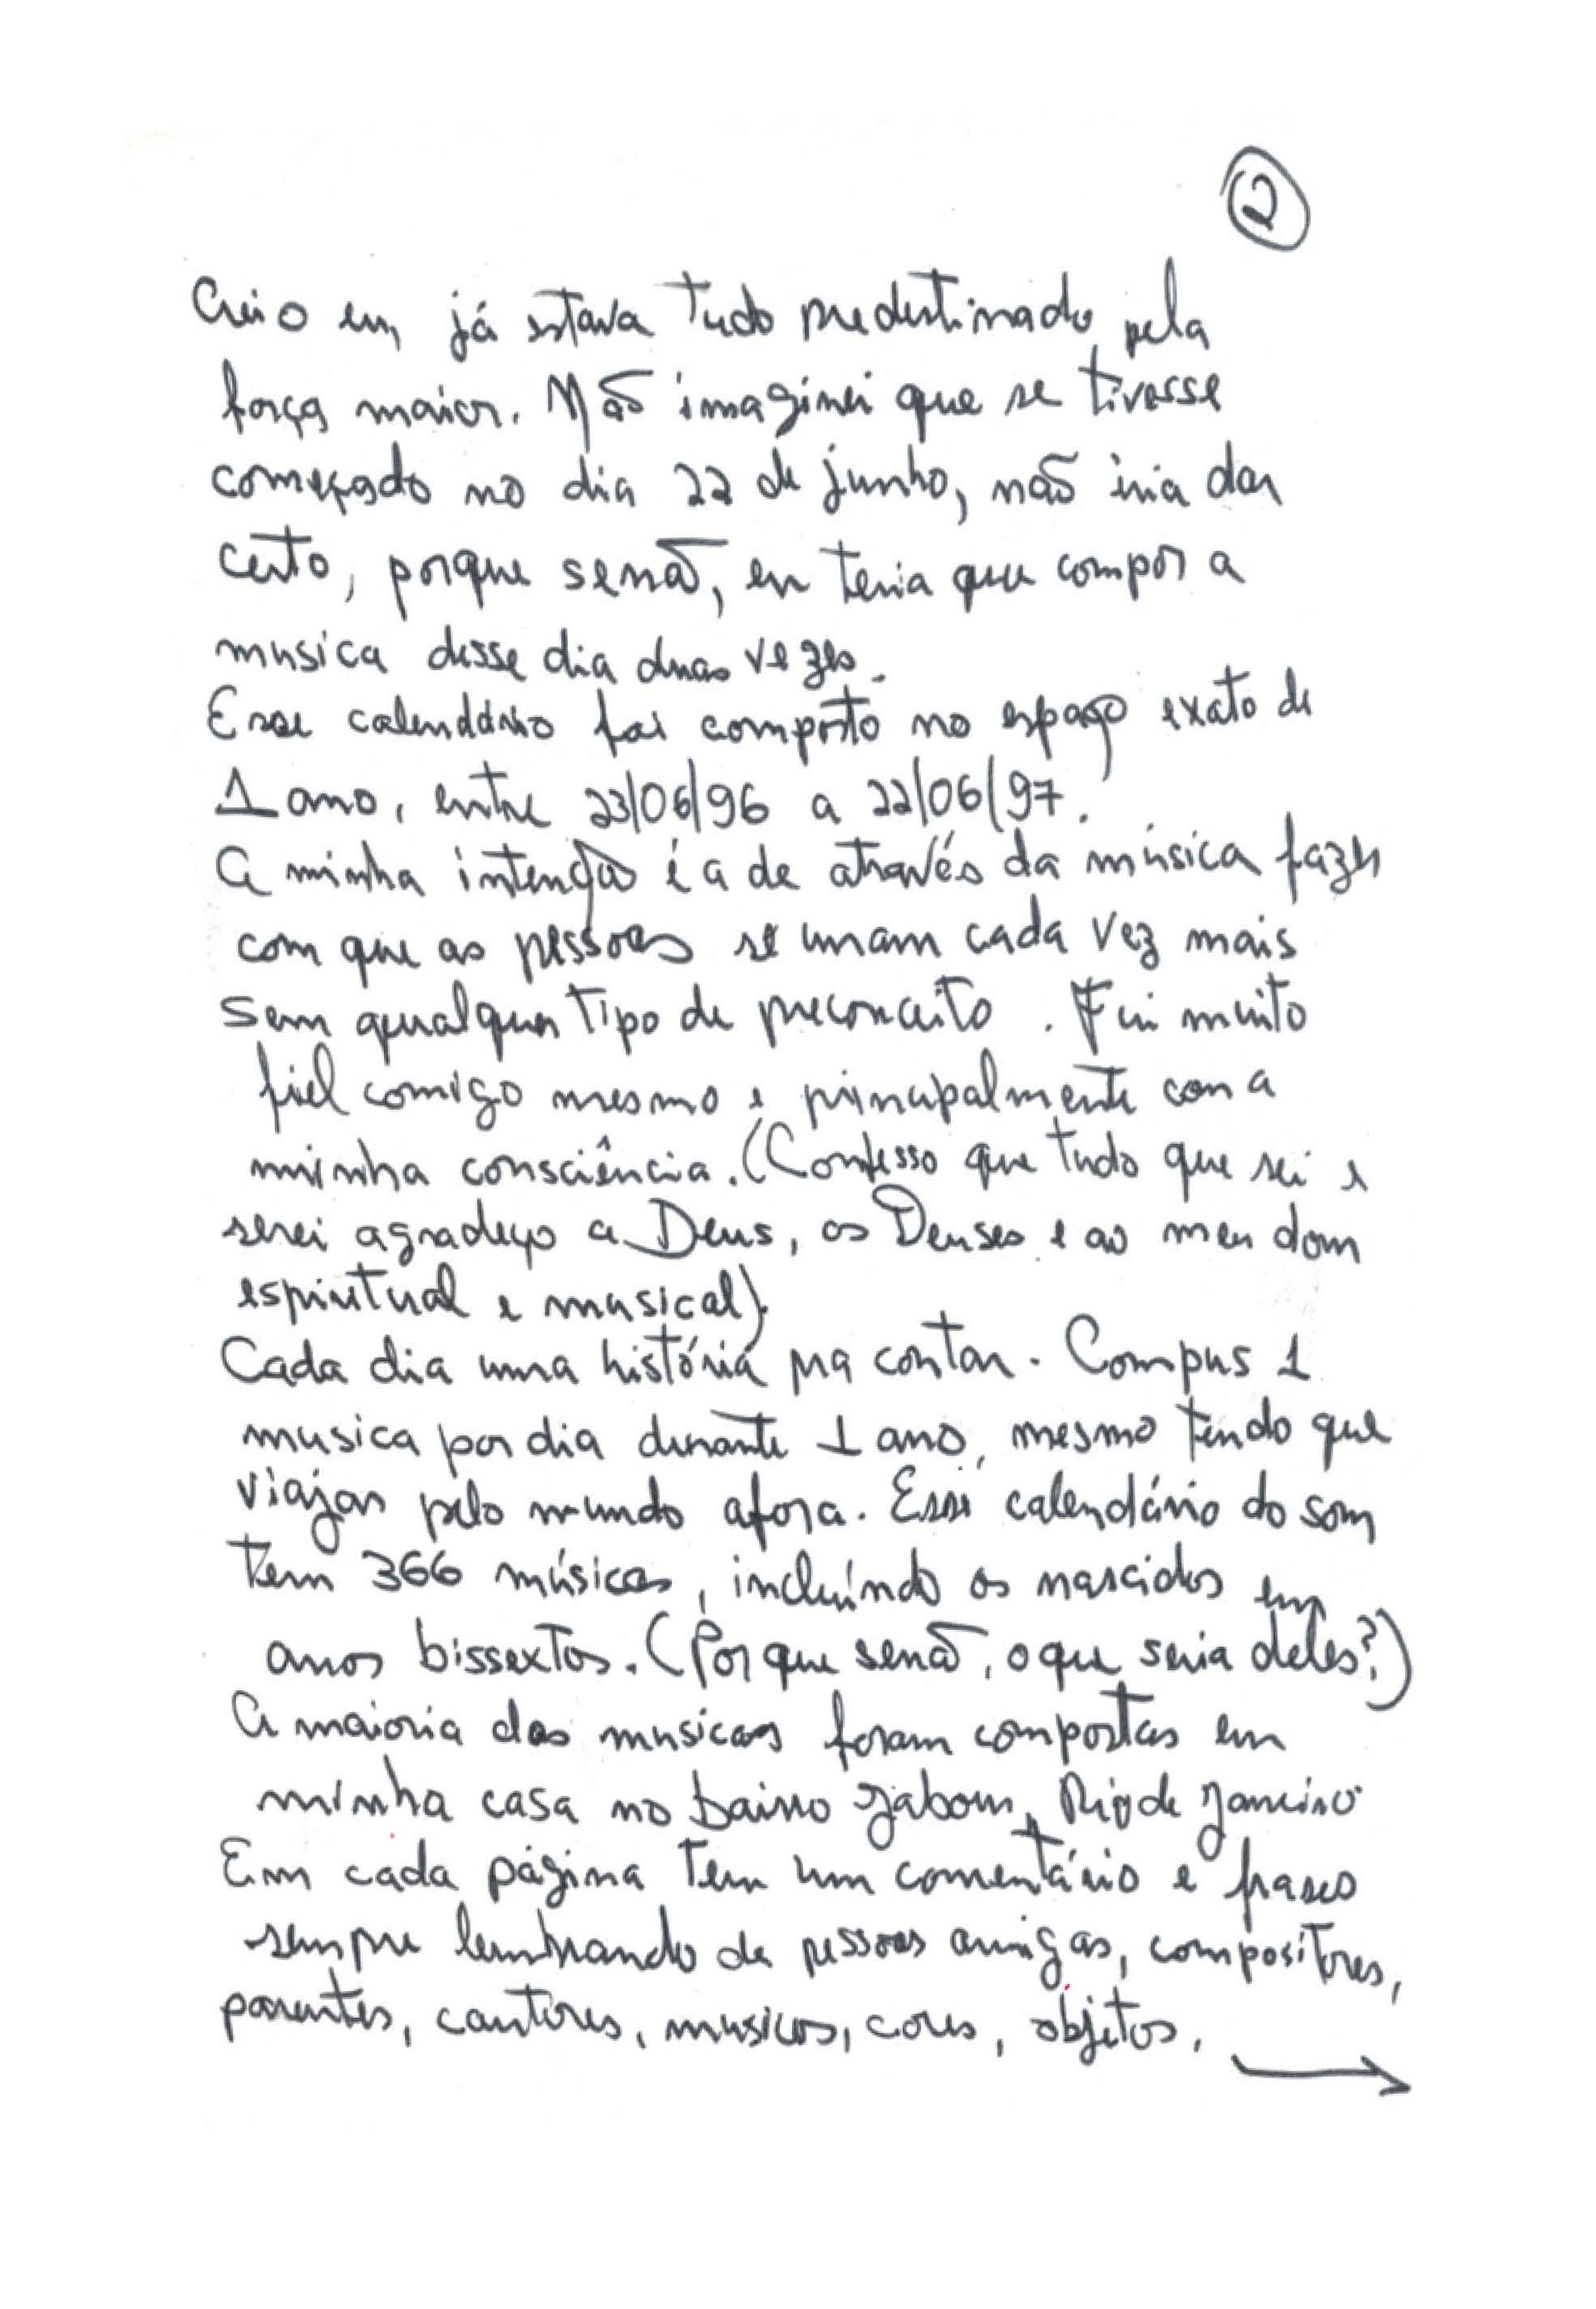 2
Creio eu, já estava tudo predestinado pela
força maior. Não imaginei que se tivesse
começado no dia 22 de junho, não iria dar
certo, porque senão, eu teria que compor a
musica desse dia duas vezes.
Esse calendário foi composto no espaço exato de
1 ano, entre 23/06/96 a 22/06/97.
A minha intenção é a de através da música fazer
com que as pessoas se unam cada vez mais
sem qualquer tipo de preconceito. Fui muito
fiel comigo mesmo e principalmente com a
minha consciência. (Confesso que tudo que sei e
serei agradeço a Deus, os Deuses e ao meu dom
espiritual e musical).
Cada dia uma história pra contar. Compus 1
musica por dia durante 1 ano, mesmo tendo que
viajar pelo mundo afora. Esse calendário do som
tem 366 músicas, incluíndo os nascidos em
anos bissextos. (Porque senão, o que seria deles?)
A maioria das musicas foram compostas em
minha casa no bairro Jabour, Rio de Janeiro
Em cada página tem um comentário e frases
sempre lembrando de pessoas amigas, compositores,
parentes, cantores, musicos, cores, objetos,